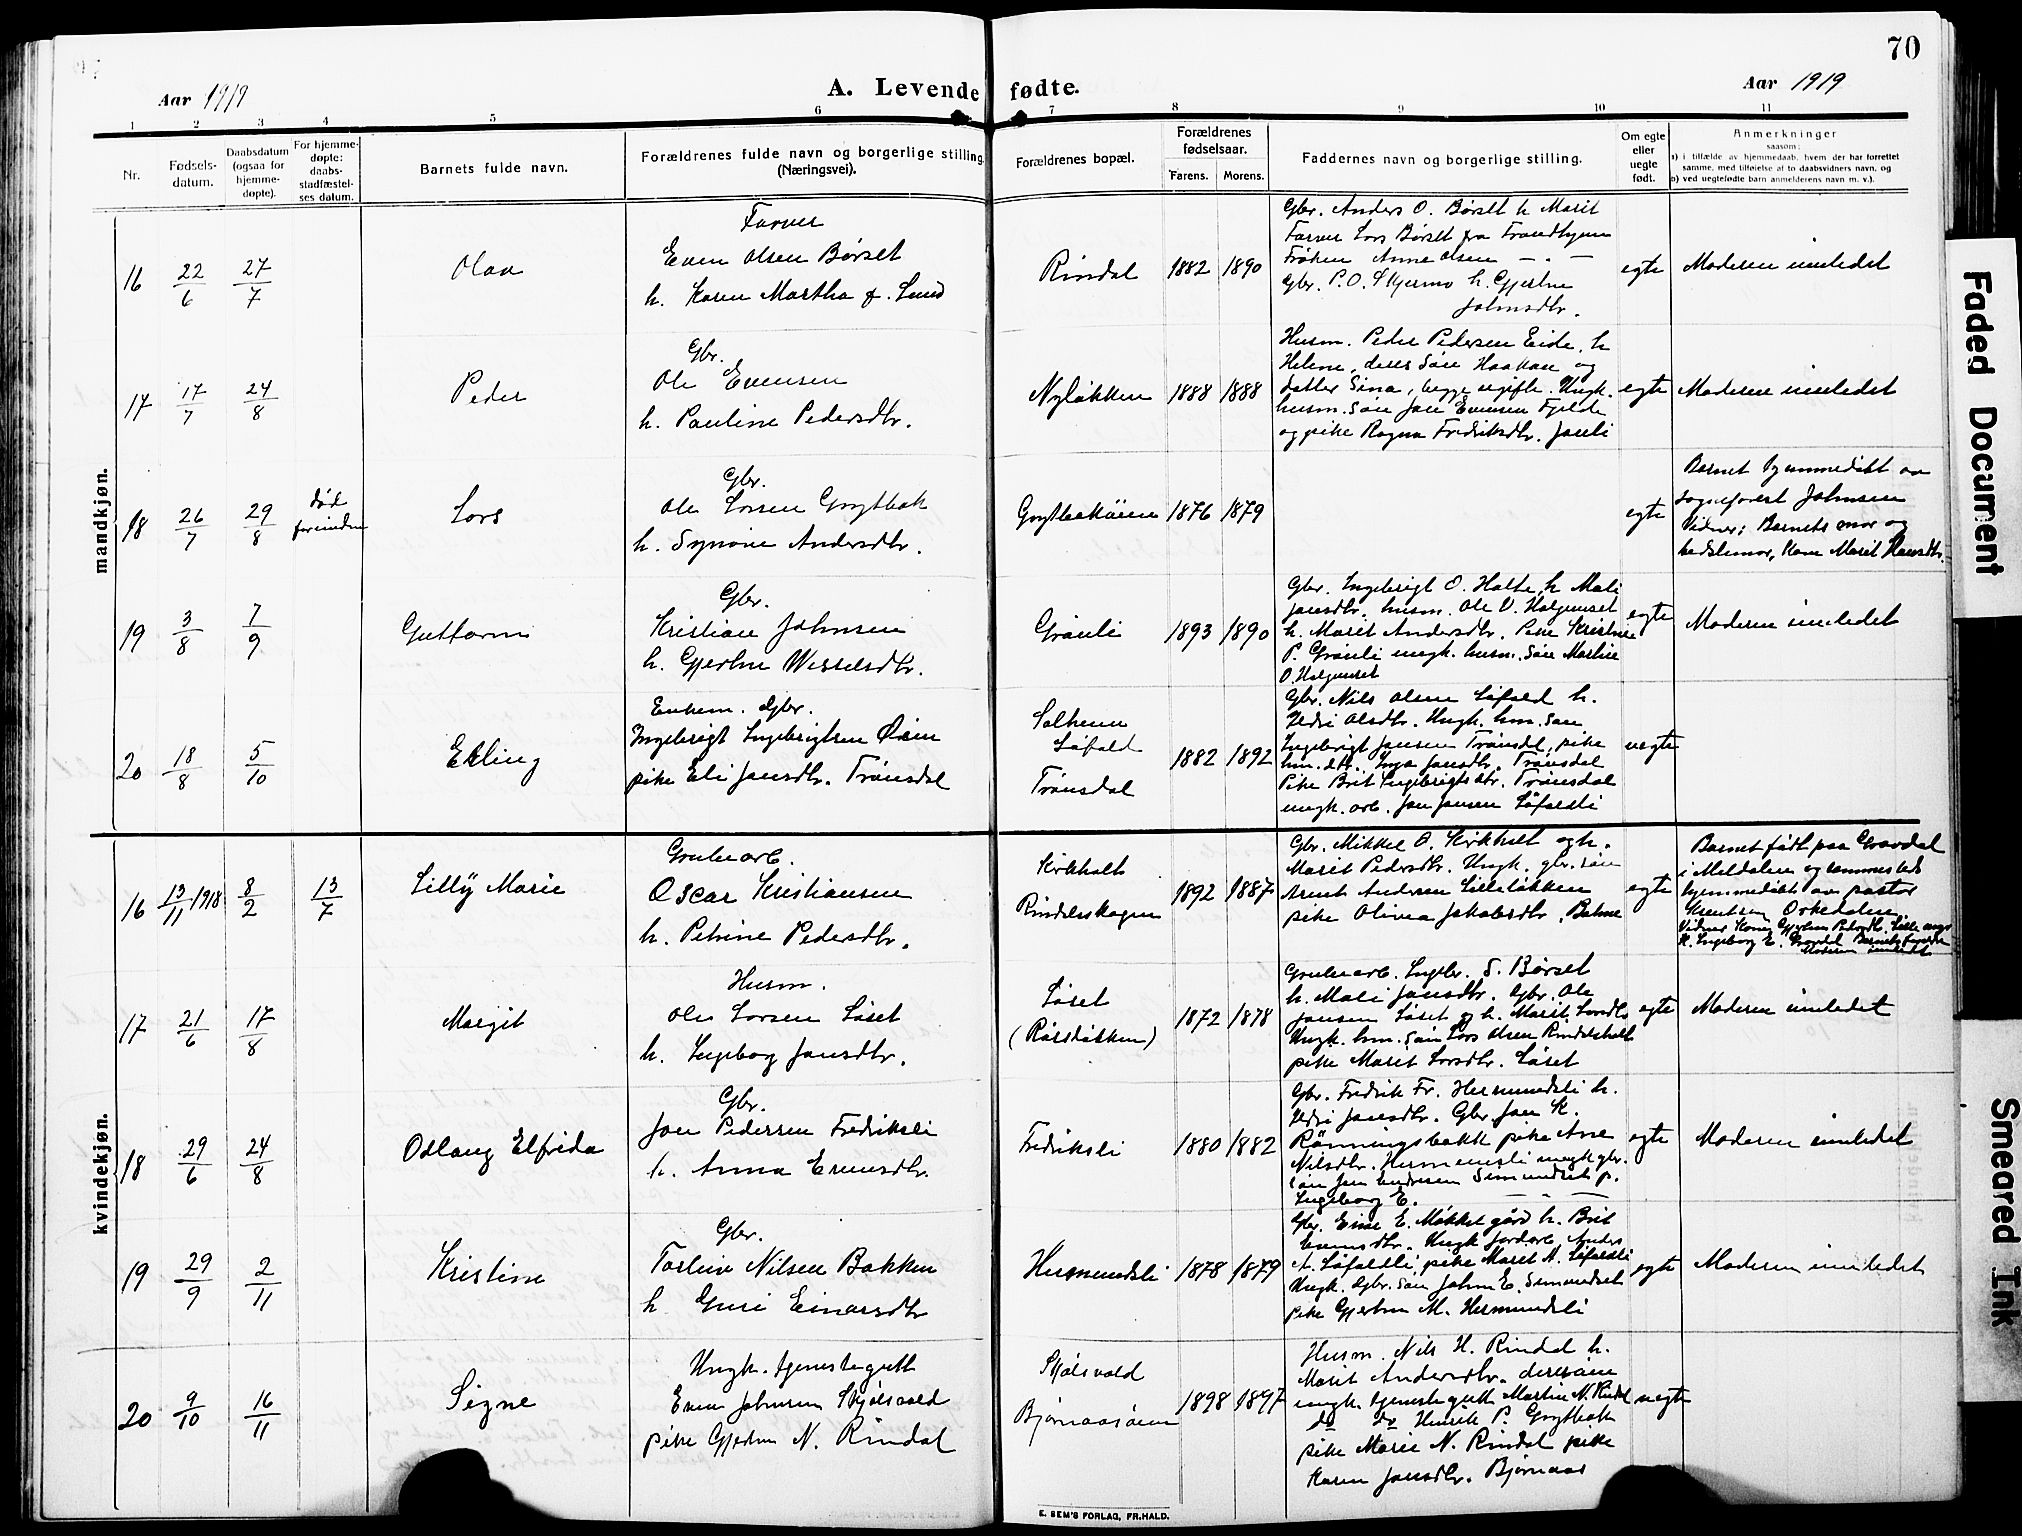 70
Aar 1919
A. Levende fødte.
Aar 1919
1 2 3 4 5 6 7 8 9 10 11
Nr.
Fødsels-
datum.
Daabsdatum
(ogsaa for
hjemme-
døpte).
For hjemme-
døpte:
daabs-
stadfæstel-
ses datum.
Barnets fulde navn.
Forældrenes fulde navn og borgerlige stilling
(Næringsvei).
Forældrenes bopæl.
Forældrenes
fødselsaar.
Farens. Morens.
Faddernes navn og borgerlige stilling.
Om egte
eller
uegte
født.
Anmerkninger
saasom:
a) i tilfælde av hjemmedaab, hvem der har forrettet
samme, med tilføielse af to daabsvidners navn, og
b) ved uegtefødte barn anmelderens navn m. v.).
mandkjøn.
16 22/6 27/7 Olav
Farver
Even Olsen Børset
h. Karen Martha f. Lund
Rindal 1882 1890
Gbr. Anders O. Børset h. Marit
Farver Lars Børset fra Trondhjem
Frøken Anne Olsen — " —
Gbr. P. O. Skjermo h. Gjertine
Johnsdtr.
egte Moderen innledet
17 17/7 24/8 Peder
Gbr.
Ole Evensen
h. Pauline Pedersdtr.
Nyløkken 1888 1888
Husm. Peder Pedersen Eide, h.
Helene, deres søn Haakon og
datter Sina, begge ugifte. Ungk.
husm. søn Jon Evensen Fjelde
og pike Ragna Fredriksdtr. Jonli
egte Moderen innledet
18 26/7 29/8 død
forinden
Lars
Gbr.
Ole Larsen Grytbak
h. Synøve Andersdtr.
Grytbakøien 1876 1879
egte
Barnet hjemmedøbt av
sogneprest Johnsen
Vidner: Barnets mor og
bedstemor, Kone Marit Hansdtr.
19 3/8 7/9 Guttorm
Gbr.
Kristian Johnsen
h. Gjertine Wesselsdtr.
Grønli 1893 1890
Gbr. Ingebrigt O. Halte, h. Mali
Jonsdtr. husm. Ole O. Holgunset
h. Marit Andersdtr. Pike Kristine
P. Grønli ungk. husm. søn Martin
O. Holgunset
egte Moderen innledet
20 18/8 5/10 Erling
Enkem. Gbr.
Ingebrigt Ingebrigtsen Øien
pike Eli Jonsdtr. Trønsdal
Solheim
Løfald
Trønsdal
1882 1892
Gbr. Nils Olsen Løfald h.
Ildri Olsdtr. Ungk. hm. søn
Ingebrigt Jonsen Trønsdal, pike
hm. dtr. Inga Jonsdtr. Trønsdal
Pike Brit Ingebrigtsdtr. Trønsdal
ungk. arb. Jon Jonsen Løfaldli
uegte
kvindekjøn.
16 13/11 1918 8/2 13/7 Lilly Marie
Grubearb.
Oscar Kristiansen
h. Petrine Pedersdtr.
Kirkholt
Rindalsskogen
1892 1887
Gbr. Mikkel O. Kirkholt og h.
Marit Pedersdtr. Ungk. gbr. søn
Arnt Andersen Lilleløkken
pike Olina Jakobsdtr. Bolme
egte
Barnet født paa Grovdal
i Meldalen og sammesteds
hjemmedøbt av pastor
Knutsen Orkedalen.
Vidner Kone Gjertin Pedersdtr. Lilleenge
K. Ingeborg E. Grovdal Barnets forældre
Moderen innledet
17 21/6 17/8 Margit
Husm.
Ole Larsen Løset
h. Ingeborg Jonsdtr.
Løset
(Rørsløkken)
1872 1878
Grubearb. Ingbr. S. Børset
h. Mali Jonsdtr. Gbr. Ole
Jonsen Løset og h. Marit Larsdtr.
Ungk. hm. søn Lars Olsen Rindalsholt
pike Marit Larsdtr. Løset
egte Moderen innledet
18 29/6 24/8 Odlaug Elfrida
Gbr.
Jon Pedersen Fredriksli
h. Anna Evensdtr.
Fredriksli 1880 1882
Gbr. Fredrik Fr. Hermundsli h.
Ildri Jonsdtr. Gbr. Jon K.
Rønningsbakk pike Ane
Nilsdtr. Hermundsli ungk. gbr.
søn Jon Andersen Simundset p.
Ingeborg E. — " —
egte Moderen innledet
19 29/9 2/11 Kristine
Gbr.
Torleiv Nilsen Bakken
h. Guri Einarsdtr
Hermundsli 1878 1879
Gbr. Einar E. Møkkelgård h. Brit
Evensdtr. Ungk. jordarb. Anders
A. Løfaldli, pike Marit A. Løfaldli
Ungk. Gbr. søn John E. Simundset
pike Gjertin M. Hermundsli
egte Moderen innledet
20 9/10 16/11 Signe
Ungk. tjenestegutt
Even Johnsen Skjølsvold
pike Gjertin N. Rindal
Skjølsvold
Bjørnaasøien
1898 1897
Husm. Nils H. Rindal h.
Marit Andersdtr. deres søn
ungk. tjenestegutt Martin N. Rindal
do do Henrik P. Grytbak
pike Marie N. Rindal pike
Karen Jonsdtr. Bjørnaas
uegte
E. SEM'S FORLAG, FR.HALD.
Faded Document
Smeared Ink